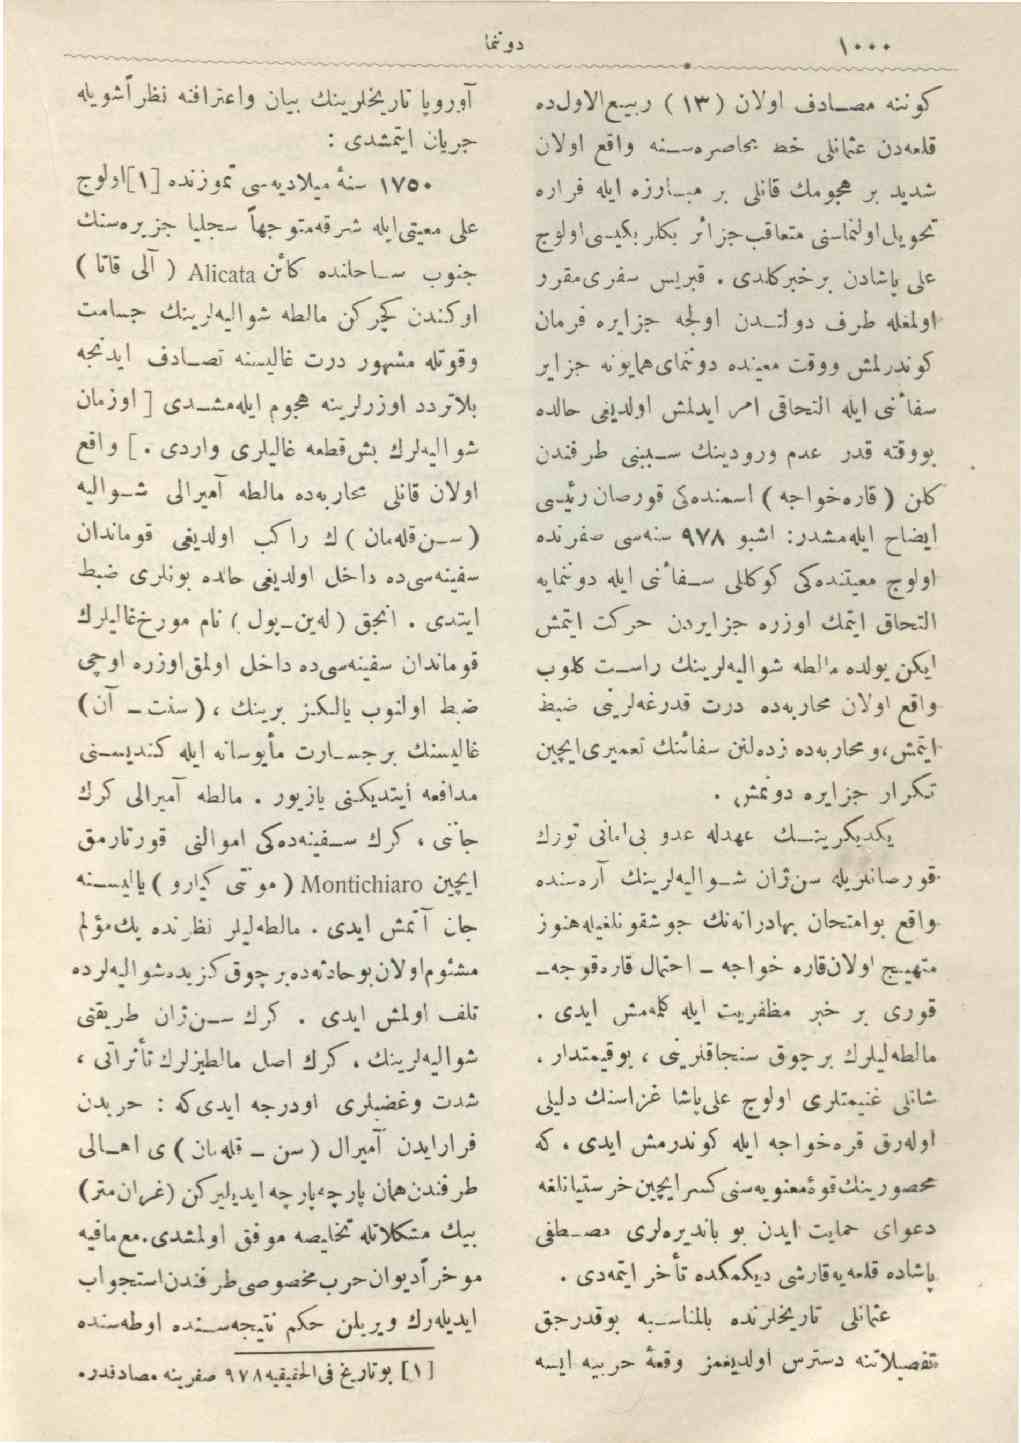 ١٠٠٠
دوننما
كوننه مصـادف اولان (١٣) ربيع‌الاول‌ده
قلعه‌دن عثمانلى خط محاصره‌سـنه واقع اولان
شديد بر هجومك قانلى بر مبـارزه ايله فراره
تحويل اولنماسنى متعاقب جزائر بكلر بكيسى اولوج
على پاشادن بر خبر كلدى . قبريس سفرى مقرر
اولمغله طرف دولتـدن اولجه جزايره فرمان
كوندرلمش ووقت معينده دوننماى همايونه جزاير
سفائنى ايله التحاقى امر ايدلمش اولديغى حالده
بووقته قدر عدم ورودينك سـببنى طرفندن
كلن ( قاره خواجه ) اسمنده‌كى قورصان رئيسى
ايضاح ايله‌مشدر: اشبو ٩٧٨ سنه‌سى صفرنده
اولوج معيتنده‌كى كوكللى سـفائنى ايله دوننمايه
التحاق ايتمك اوزره جزايردن حركت ايتمش
ايكن يولده مالطه شواليه‌لرينك راسـت كلوب
واقع اولان محاربه‌ده درت قدرغه‌لرينى ضبط
ايتمش،و محاربه‌ده زده‌لنن سفائنك تعميرى ايچين
تكرار جزايره دونمش .
يكديكرينـك عهدله عدو بى‌امانى تورك
قورصانلريله سن ژان شـواليه‌لرينك آره‌سنده
واقع بوامتحان بهادرانه‌نك جوشقونلغيله هنوز
متهيج اولان قاره خواجه ـ احتمال قاره‌قوجه ـ
قورى بر خبر مظفريت ايله كلمه‌مش ايدى .
مالطه‌ليلرك برچوق سنجاقلرينى ، بوقيمتدار .
شانلى غنيمتلرى اولوج على پاشا غزاسنك دليلى
اوله‌رق قره خواجه ايله كوندرمش ايدى ، كه
محصورينك قوۀ معنويه‌سنى كسر ايچين خرستيانلغه
دعواى حمايت ايدن بو بانديره‌لرى مصـطفى
پاشاده قلعه‌يه قارشى ديكمكده تأخر ايتمه‌دى .
عثمانلى تاريخلرنده بالمناسـبه بوقدرجق
تفصيلاتنه دسترس اولديغمز وقعۀ حربيه ايسه
آوروپا تاريخلرينك بيان واعترافنه نظراً شويله
جريان ايتمشدى :
١٧٥٠ سنۀ ميلاديه‌سى تموزنده [١] اولوج
على معيتى ايله شرقه متوجهاً سجليا جزيره‌سنك
جنوب سـاحلنده كائن Alicata ( آلى قاتا )
اوكندن كچركن مالطه شواليه‌لرينك جسامت
وقوتله مشهور درت غاليسنه تصـادف ايدنجه
بلاتردد اوزرلرينه هجوم ايله‌مشـدى [ اوزمان
شواليه‌لرك بش قطعه غاليلرى واردى .] واقع
اولان قانلى محاربه‌ده مالطه آميرالى شـواليه
(سـن قله‌مان)ك راكب اولديغى قوماندان
سفينه‌سى‌ده داخل اولديغى حالده بونلرى ضبط
ايتدى . انجق (له‌ين‌ـ‌پول) نام مورخ غاليلرك
قوماندان سفينه‌سى‌ده داخل اولمق اوزره اوچى
ضبط اولنوب يالكز برينك ، (سنت ـ آن)
غاليسنك برجسـارت مأيوسانه ايله كنديسـنى
مدافعه ايتديكنى يازيور . مالطه آميرالى كرك
جاننى ، كرك سـفينه‌ده‌كى اموالنى قورتارمق
ايچين Montichiaro (مونتى كيارو) ياليسـنه
جان آتمش ايدى . مالطه‌ليلر نظرنده پك مؤلم
مشئوم اولان بوحادثه‌ده برچوق كزيده شواليه‌لرده
تلف اولمش ايدى . كرك سـن ژان طريقتى
شواليه‌لرينك . كرك اصل مالطيزلرك تأثراتى ،
شدت وغضبلرى اودرجه ايدى‌كه : حربدن
فرار ايدن آميرال (سن ـ قله‌مان)ى اهـالى
طرفندن همان پارچه پارچه ايديليركن (غران متر)
بيك مشكلاتله تخليصه موفق اولمشدى.مع‌مافيه
موخراً ديوان حرب مخصوصى طرفندن استجواب
ايديله‌رك ويريلن حكم نتيجه‌سـنده اوطه‌سنده
[١] بوتاريخ فى‌الحقيقه ٩٧٨ صفرينه مصادفدر.